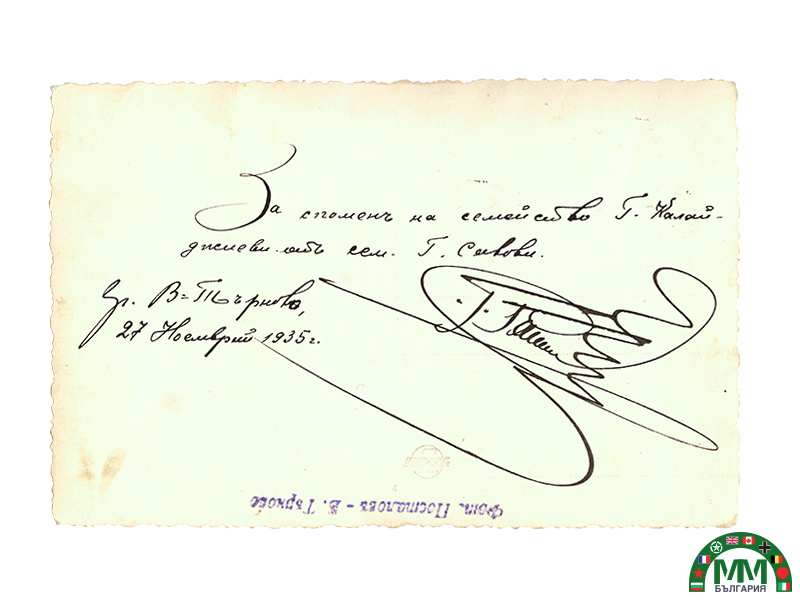 За споменъ на семейство Г. Калай-
джиеви отъ сем. Г. Савови.
гр. В=Търново,
27 Ноемврий 1935 г.
Фот. Посталовъ - В. Търново
ММ
БЪЛГАРИЯ